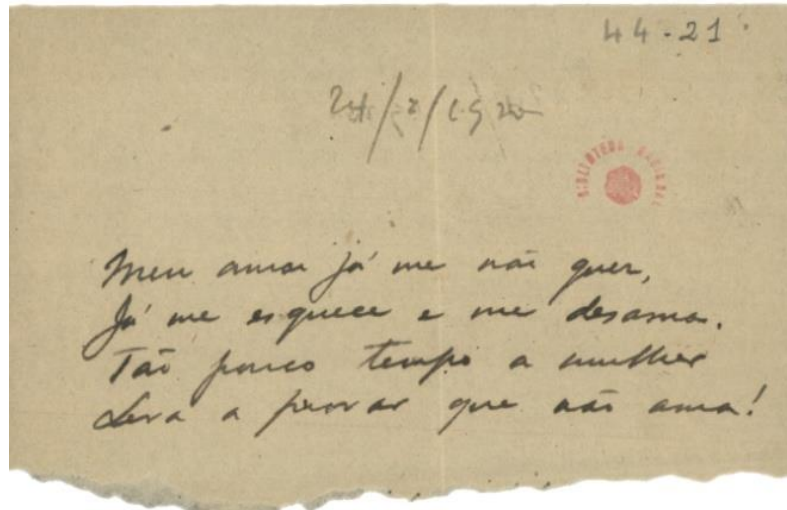 44-21
BIBLIOTECA NACIONAL
Meu amor já me não quer,
Já me esquece e me desama.
Tão pouco tempo a mulher
Leva a provar que não ama!